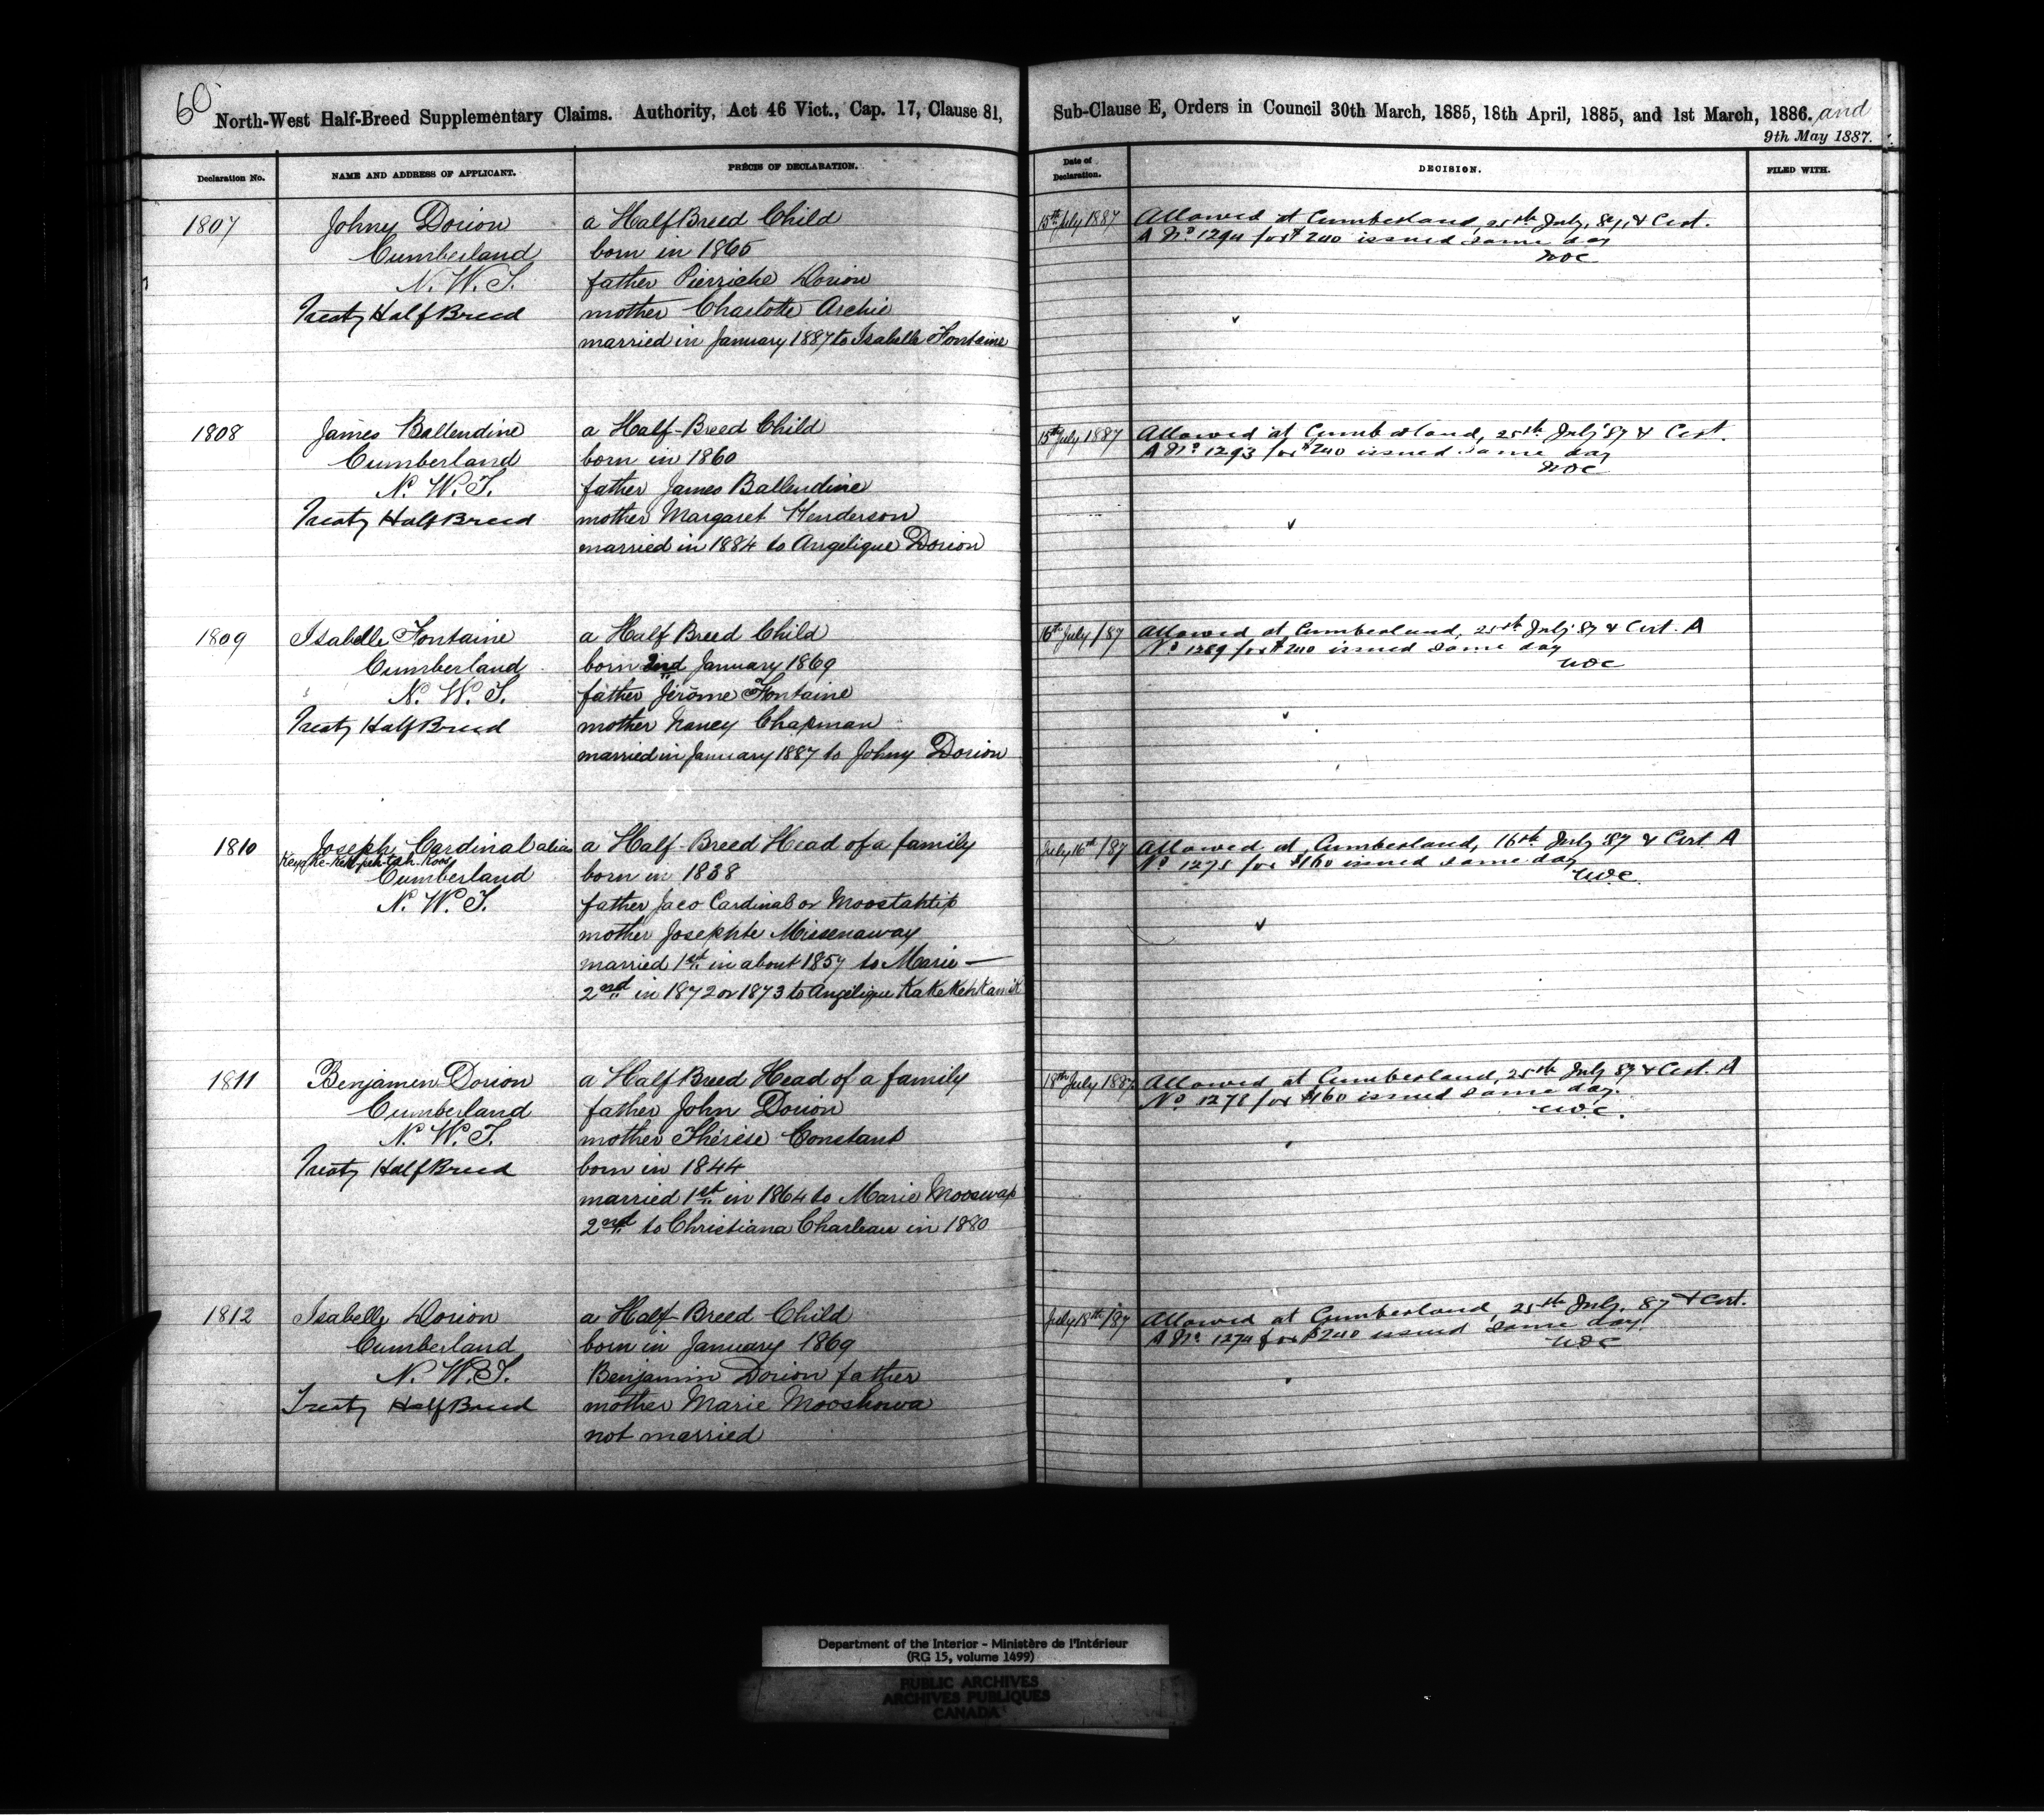 60
North-West Half-Breed Supplementary Claims. Authority, Act 46 Vict., Cap. 17, Clause 81,
Sub-Clause E, Orders in Council 30th March, 1885, 18th April, 1885, and 1st March, 1886. and
9th May 1887.
Declaration No.
NAME AND ADDRESS OF APPLICANT.
PRÉCIS OF DECLARATION.
Date of Declaration.
DECISION.
FILED WITH.
1807
Johny Dorion
Cumberland
N. W. T.
Treaty Half Breed
a Half Breed Child
born in 1865
father Pierriche Dorion
mother Charlotte Archie
married in January 1887 to Isabelle Fontaine
15th July 1887
Allowed at Cumberland, 25th July, 87, & Cert.
A No 1294 for $240 issued same day
1808
James Ballendine
Cumberland
N. W. T.
Treaty Half Breed
a Half-Breed Child
born in 1860
father James Ballendine
mother Margaret Henderson
married in 1884 to Angélique Dorion
15th July 1887
Allowed at Cumberland, 25th July 87 & Cert.
A No 1293 for $240 issued same day
1809
Isabelle Fontaine
Cumberland
N. W. T.
Treaty Half Breed
a Half Breed Child
born 2nd January 1869
father Jérôme Fontaine
mother Nancy Chapman
married in January 1887 to Johny Dorion
16th July /87
Allowed at Cumberland, 25th July 87 & Cert. A
No 1289 for $240 issued same day
1810
Joseph Cardinal alias
Cumberland
N. W. T.
a Half-Breed Head of a family
born in 1838
father Jaco Cardinal or Moostahtip
mother Josephte Missenaway
married 1st in about 1857 to Marie —
2nd in 1872 or 1873 to Angélique KaKeKehKamiK
July 16th /87
Allowed at Cumberland, 16th July 87 & Cert. A
No 1275 for $160 issued same day
1811
Benjamin Dorion
Cumberland
N. W. T.
Treaty Half Breed
a Half Breed Head of a family
father John Dorion
mother Thérèse Constant
born in 1844
married 1st in 1864 to Marie Mooswap
2nd to Christiana Charleau in 1880
18th July 1887
Allowed at Cumberland, 25th July 87 & Cert. A
No 1278 for $160 issued same day.
1812
Isabelle Dorion
Cumberland
N. W. T.
Treaty Half Breed
a Half-Breed Child
born in January 1869
Benjamin Dorion father
mother Marie Mooshowa
not married
July 18th /87
Allowed at Cumberland, 25th July, 87 & Cert.
A No 1274 for $240 issued same day
Department of the Interior - Ministère de l'Intérieur
(RG 15, volume 1499)
PUBLIC ARCHIVES
ARCHIVES PUBLIQUES
CANADA